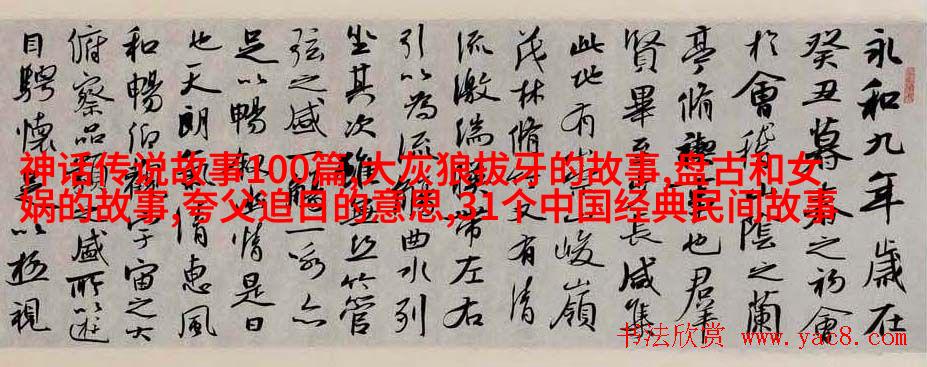 永和九年歲在
癸丑暮春之初會
於會稽山陰之蘭
亭脩禊事也群
賢畢至少長咸集
此地有崇山峻嶺
茂林脩竹又有清
流激湍暎帶左右
引以為流觴曲水列
坐其次雖無絲竹管
弦之盛一觴一詠亦
足以暢敘幽情是日
也天朗氣清惠風
和暢仰觀宇宙之大
俯察品類之盛所以遊
目騁懷足以極視
神话传说故事100篇,大灰狼拔牙的故事,盘古和女
娲的故事,夸父追日的意思,31个中国经典民间故事
书法欣赏 www.yac8.com